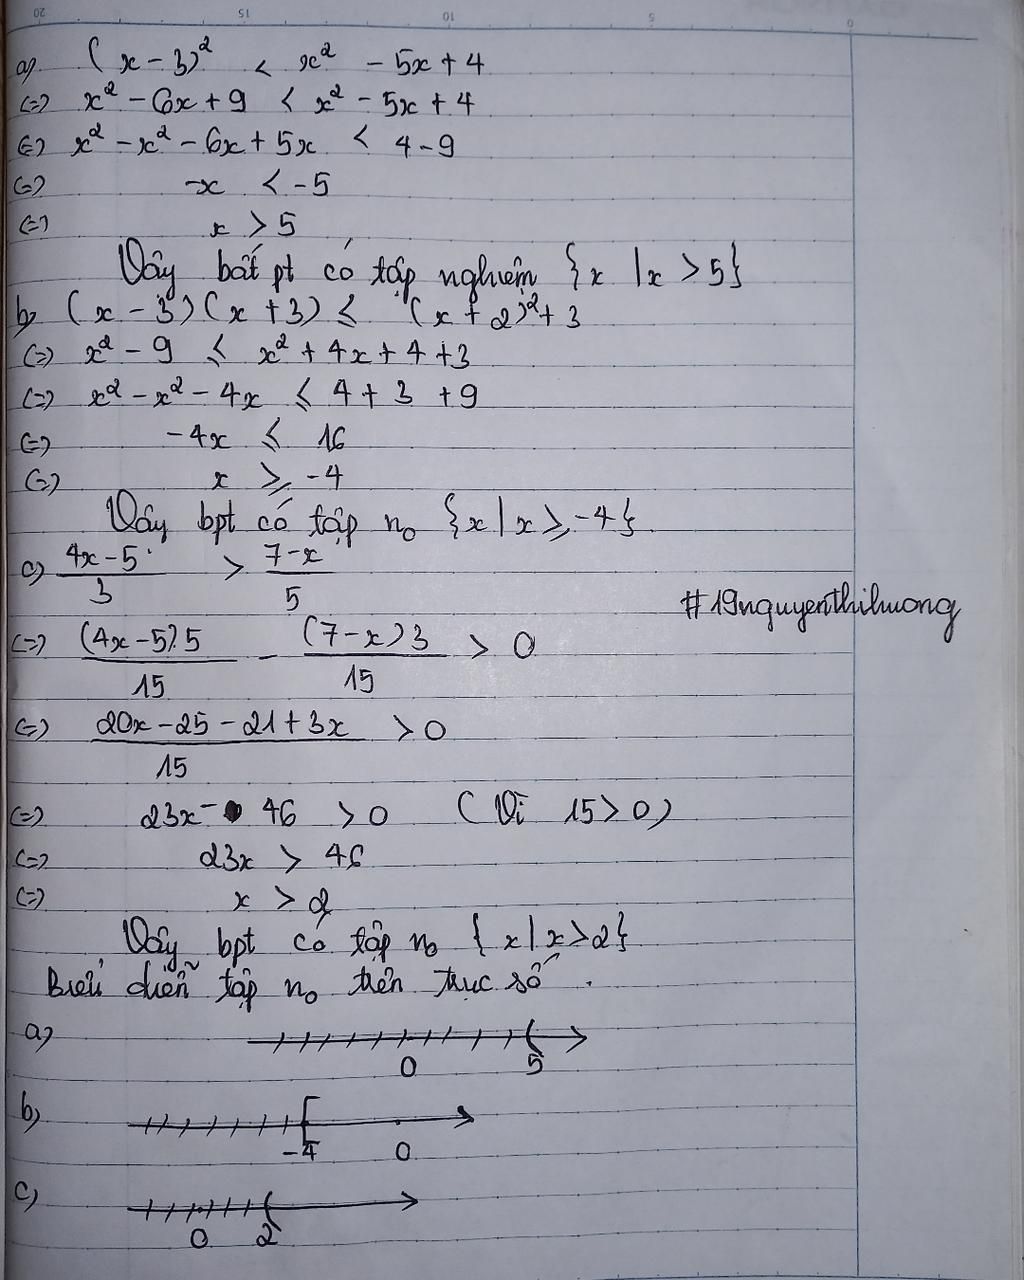 20 15 10 5 0
a) (x - 3)² < x² - 5x + 4
(=) x² - 6x + 9 < x² - 5x + 4
(=) x² - x² - 6x + 5x < 4 - 9
(=) -x < -5
(=) x > 5
Vậy bất pt có tập nghiệm {x | x > 5}
b) (x - 3)(x + 3) ≤ (x + 2)² + 3
(=) x² - 9 ≤ x² + 4x + 4 + 3
(=) x² - x² - 4x ≤ 4 + 3 + 9
(=) -4x ≤ 16
(=) x ≥ -4
Vậy bpt có tập no {x | x ≥ -4}
c) (4x - 5)/3 > (7 - x)/5
#19nguyenthihuong
(=) (4x - 5).5/15 - (7 - x)3/15 > 0
(=) (20x - 25 - 21 + 3x)/15 > 0
(=) 23x - 46 > 0 (Vì 15 > 0)
(=) 23x > 46
(=) x > 2
Vậy bpt có tập no {x | x > 2}
Biểu diễn tập no trên trục số.
a) 0 5
b) -4 0
c) 0 2